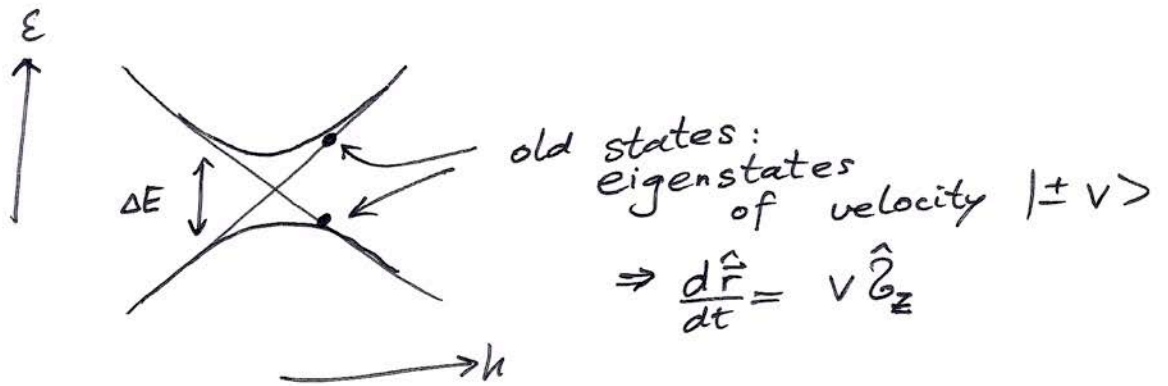 ε
old states:
eigenstates
of velocity |± v >
ΔE
⇒ d r̂⃗ / dt = v σ̂_z
k